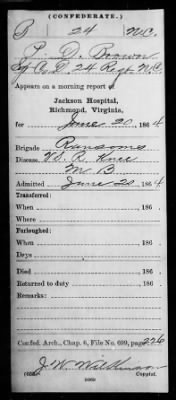 (CONFEDERATE.)
B 24 N.C.
P. D. Brown
Co. D, 24 Regt. N.C.
Appears on a morning report of
Jackson Hospital,
Richmond, Virginia,
for June 20, 1864
Brigade Ransoms
Disease Wd. R. Knee
M B
Admitted June 20, 1864
Transferred:
When , 186
Where
Furloughed:
When , 186
Days
Died , 186
Returned to duty , 186
Remarks:
Confed. Arch., Chap. 6, File No. 699, page 226
J. W.
Copyist.